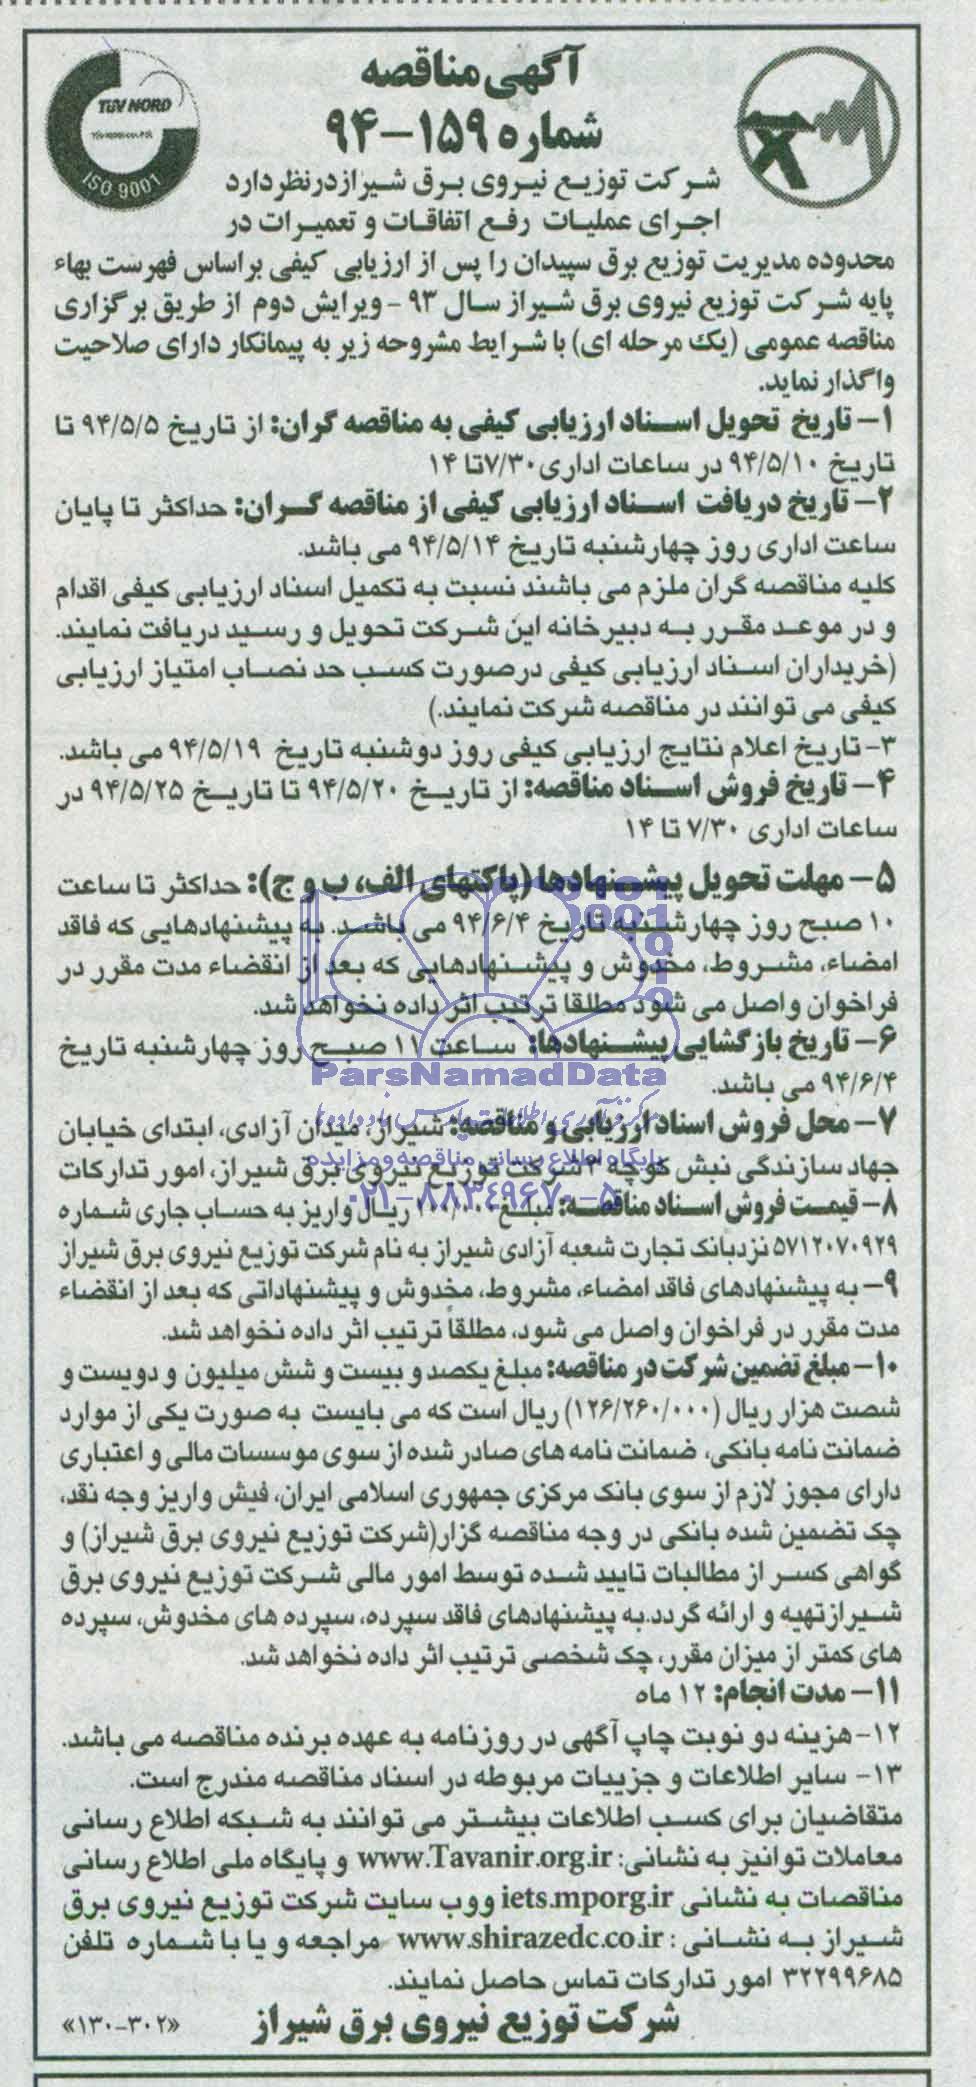 آگهی مناقصه
شماره ۱۵۹-۹۴
TÜV NORD
ISO 9001
شرکت توزیع نیروی برق شیراز در نظر دارد
اجرای عملیات رفع اتفاقات و تعمیرات در
محدوده مدیریت توزیع برق سپیدان را پس از ارزیابی کیفی براساس فهرست بهاء
پایه شرکت توزیع نیروی برق شیراز سال ۹۳ - ویرایش دوم از طریق برگزاری
مناقصه عمومی (یک مرحله ای) با شرایط مشروحه زیر به پیمانکار دارای صلاحیت
واگذار نماید.
۱- تاریخ تحویل اسناد ارزیابی کیفی به مناقصه گران: از تاریخ ۹۴/۵/۵ تا
تاریخ ۹۴/۵/۱۰ در ساعات اداری ۷/۳۰ تا ۱۴
۲- تاریخ دریافت اسناد ارزیابی کیفی از مناقصه گران: حداکثر تا پایان
ساعت اداری روز چهارشنبه تاریخ ۹۴/۵/۱۴ می باشد.
کلیه مناقصه گران ملزم می باشند نسبت به تکمیل اسناد ارزیابی کیفی اقدام
و در موعد مقرر به دبیرخانه این شرکت تحویل و رسید دریافت نمایند.
(خریداران اسناد ارزیابی کیفی درصورت کسب حد نصاب امتیاز ارزیابی
کیفی می توانند در مناقصه شرکت نمایند.)
۳- تاریخ اعلام نتایج ارزیابی کیفی روز دوشنبه تاریخ ۹۴/۵/۱۹ می باشد.
۴- تاریخ فروش اسناد مناقصه: از تاریخ ۹۴/۵/۲۰ تا تاریخ ۹۴/۵/۲۵ در
ساعات اداری ۷/۳۰ تا ۱۴
۵- مهلت تحویل پیشنهادها (پاکتهای الف، ب و ج): حداکثر تا ساعت
۱۰ صبح روز چهارشنبه تاریخ ۹۴/۶/۴ می باشد. به پیشنهادهایی که فاقد
امضاء، مشروط، مخدوش و پیشنهادهایی که بعد از انقضاء مدت مقرر در
فراخوان واصل می شود مطلقا ترتیب اثر داده نخواهد شد.
۶- تاریخ بازگشایی پیشنهادها: ساعت ۱۱ صبح روز چهارشنبه تاریخ
۹۴/۶/۴ می باشد.
ParsNamadData
مرکز فرآوری اطلاعات پارس نماد داده ها
۷- محل فروش اسناد ارزیابی و مناقصه: شیراز، میدان آزادی، ابتدای خیابان
جهاد سازندگی نبش کوچه شرکت توزیع نیروی برق شیراز، امور تدارکات
پایگاه اطلاع رسانی مناقصه و مزایده
۰۲۱-۸۸۳۴۹۶۷۰-۵
۸- قیمت فروش اسناد مناقصه: مبلغ ریال واریز به حساب جاری شماره
۵۷۱۲۰۷۰۹۲۹ نزد بانک تجارت شعبه آزادی شیراز به نام شرکت توزیع نیروی برق شیراز
۹- به پیشنهادهای فاقد امضاء، مشروط، مخدوش و پیشنهاداتی که بعد از انقضاء
مدت مقرر در فراخوان واصل می شود، مطلقاً ترتیب اثر داده نخواهد شد.
۱۰- مبلغ تضمین شرکت در مناقصه: مبلغ یکصد و بیست و شش میلیون و دویست و
شصت هزار ریال (۱۲۶/۲۶۰/۰۰۰) ریال است که می بایست به صورت یکی از موارد
ضمانت نامه بانکی، ضمانت نامه های صادر شده از سوی موسسات مالی و اعتباری
دارای مجوز لازم از سوی بانک مرکزی جمهوری اسلامی ایران، فیش واریز وجه نقد،
چک تضمین شده بانکی در وجه مناقصه گزار(شرکت توزیع نیروی برق شیراز) و
گواهی کسر از مطالبات تایید شده توسط امور مالی شرکت توزیع نیروی برق
شیراز تهیه و ارائه گردد. به پیشنهادهای فاقد سپرده، سپرده های مخدوش، سپرده
های کمتر از میزان مقرر، چک شخصی ترتیب اثر داده نخواهد شد.
۱۱- مدت انجام: ۱۲ ماه
۱۲- هزینه دو نوبت چاپ آگهی در روزنامه به عهده برنده مناقصه می باشد.
۱۳- سایر اطلاعات و جزییات مربوطه در اسناد مناقصه مندرج است.
متقاضیان برای کسب اطلاعات بیشتر می توانند به شبکه اطلاع رسانی
معاملات توانیر به نشانی: www.Tavanir.org.ir و پایگاه ملی اطلاع رسانی
مناقصات به نشانی iets.mporg.ir و وب سایت شرکت توزیع نیروی برق
شیراز به نشانی : www.shirazedc.co.ir مراجعه و یا با شماره تلفن
۳۲۲۹۹۶۸۵ امور تدارکات تماس حاصل نمایند.
شرکت توزیع نیروی برق شیراز
«۱۳۰-۳۰۲»